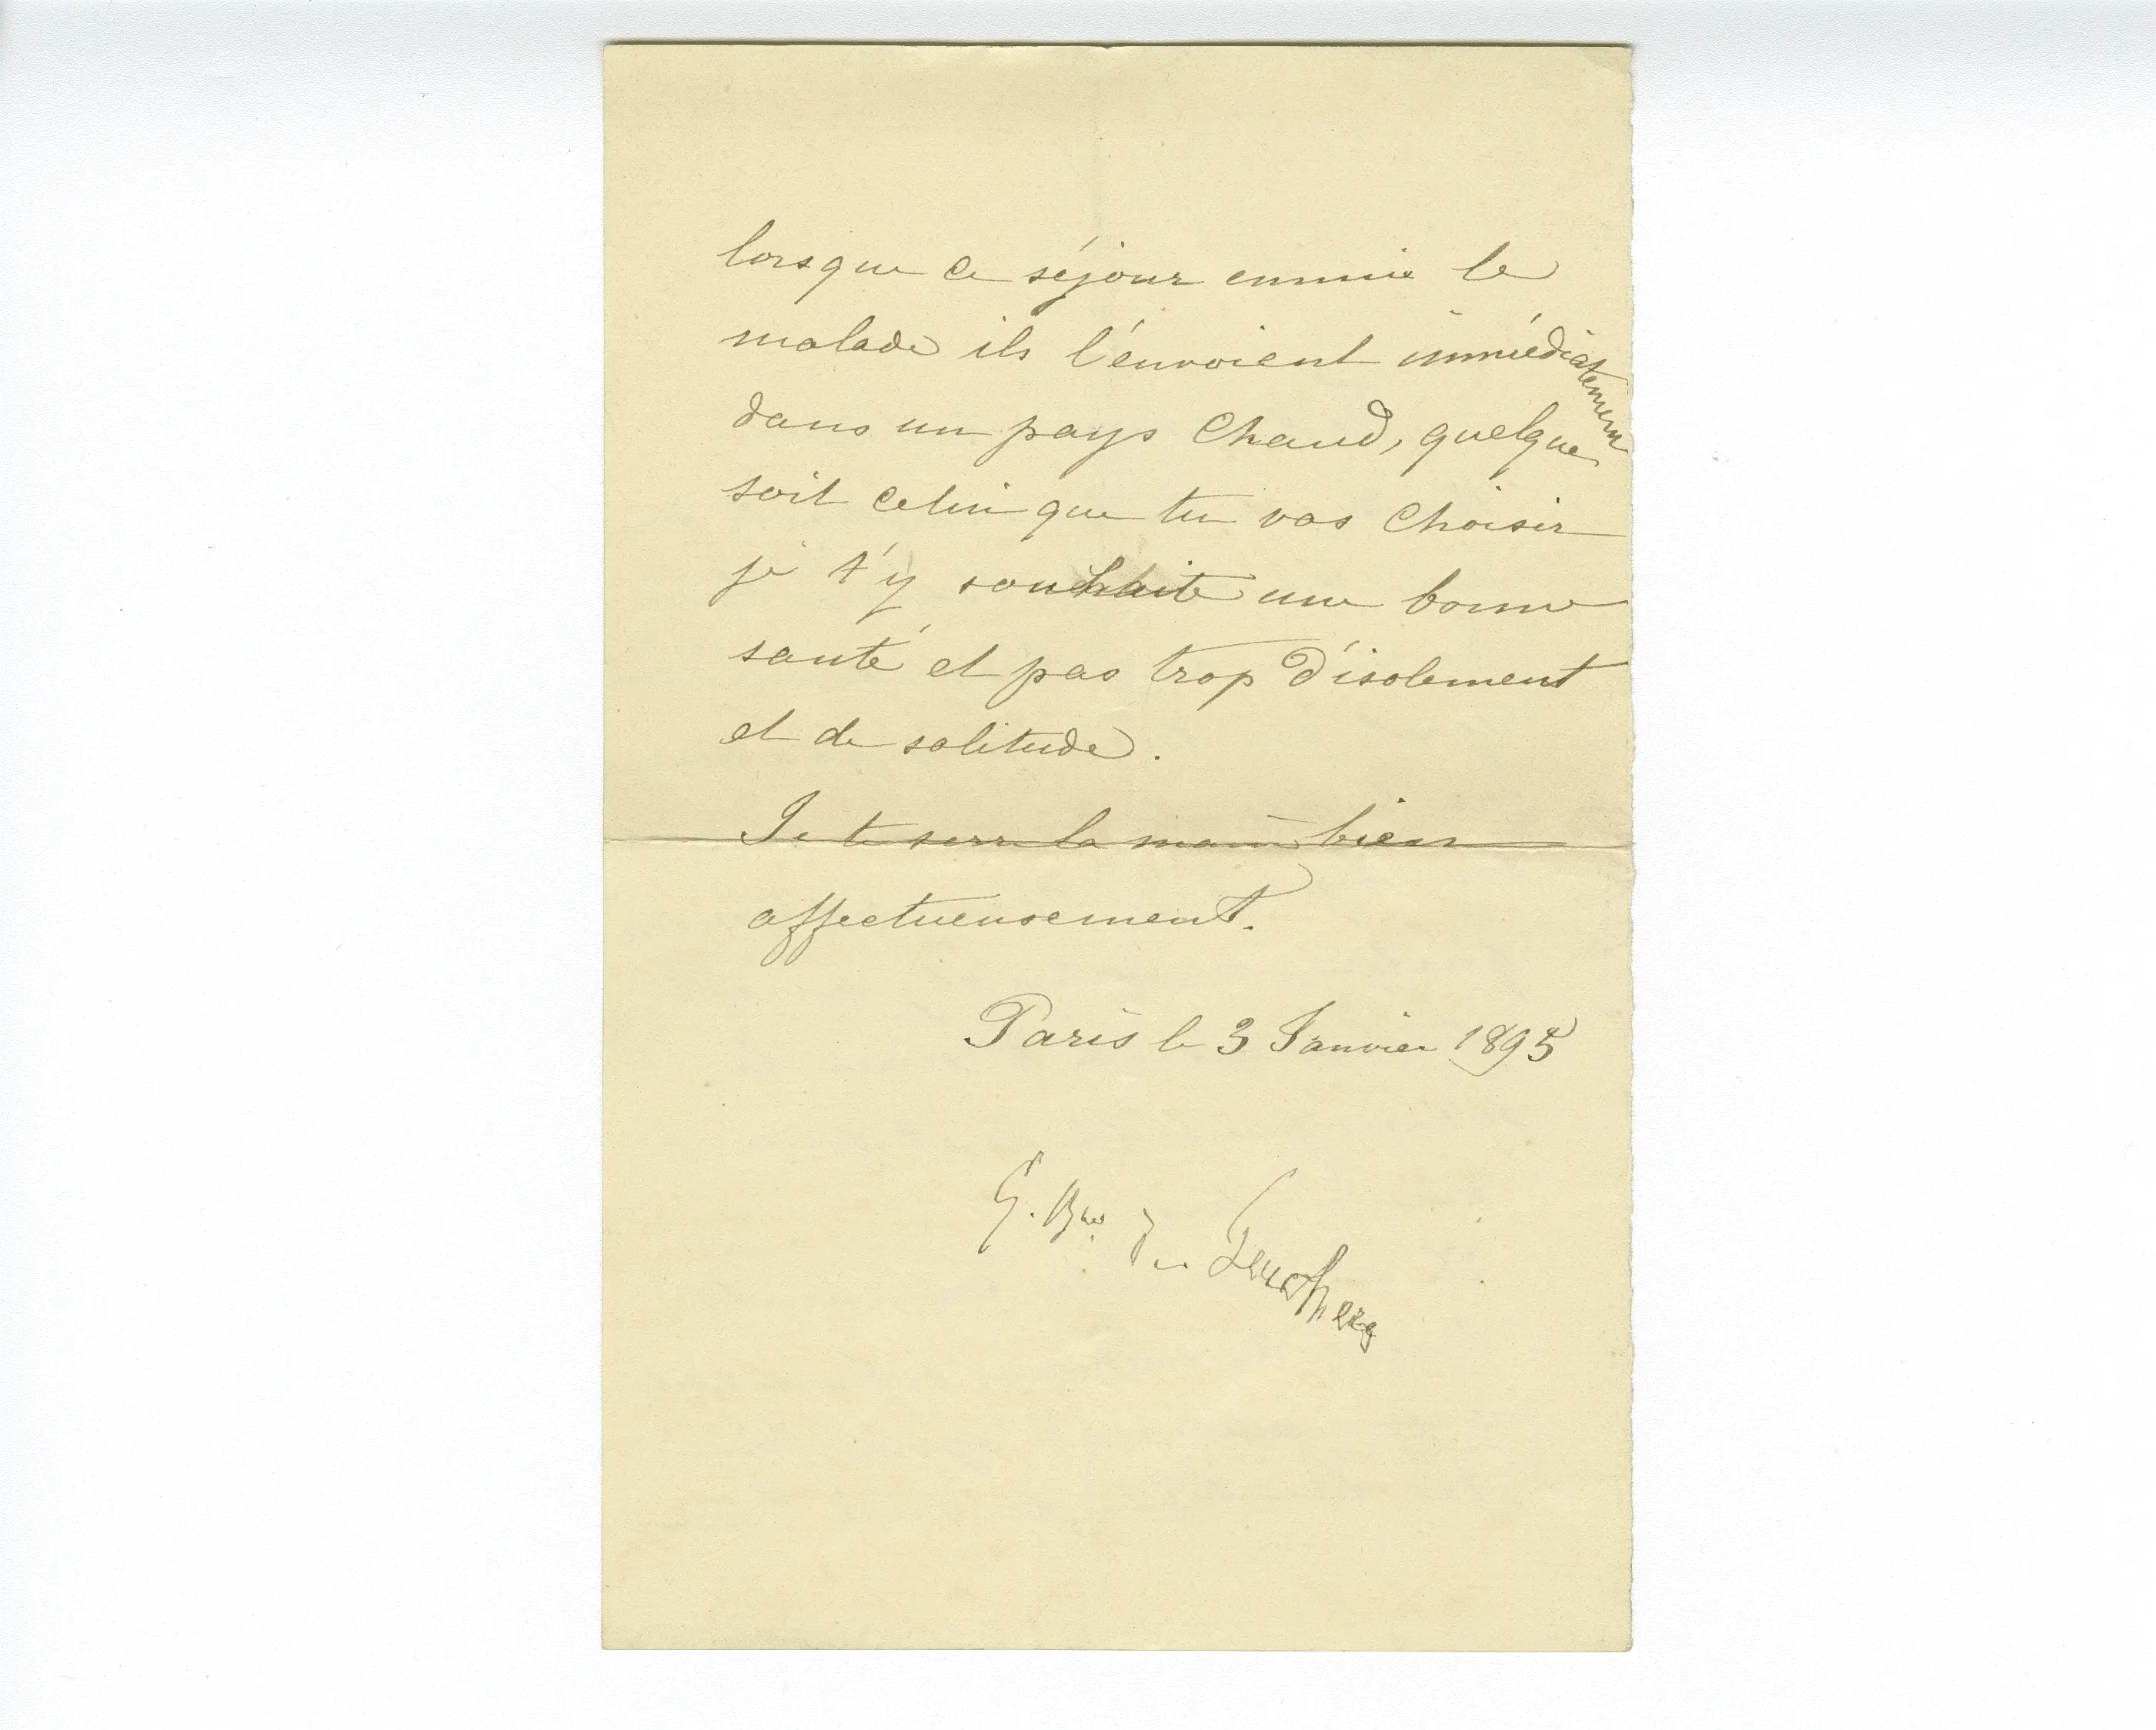 lorsque ce séjour ennuie le
malade ils l'envoient immédiatement
dans un pays chaud, quelque
soit celui que tu vas choisir
je t'y souhaite une bonne
santé et pas trop d'isolement
et de solitude.
Je te serre la main bien
affectueusement.
Paris le 3 Janvier 1895
G. Bon de